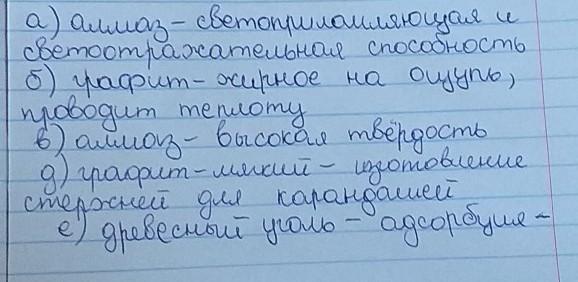 а) алмаз - светопреломляющая и
светоотражательная способность
б) графит - жирное на ощупь,
проводит теплоту
в) алмаз - высокая твёрдость
д) графит - мягкий - изготовление
стержней для карандашей
е) древесный уголь - адсорбция -